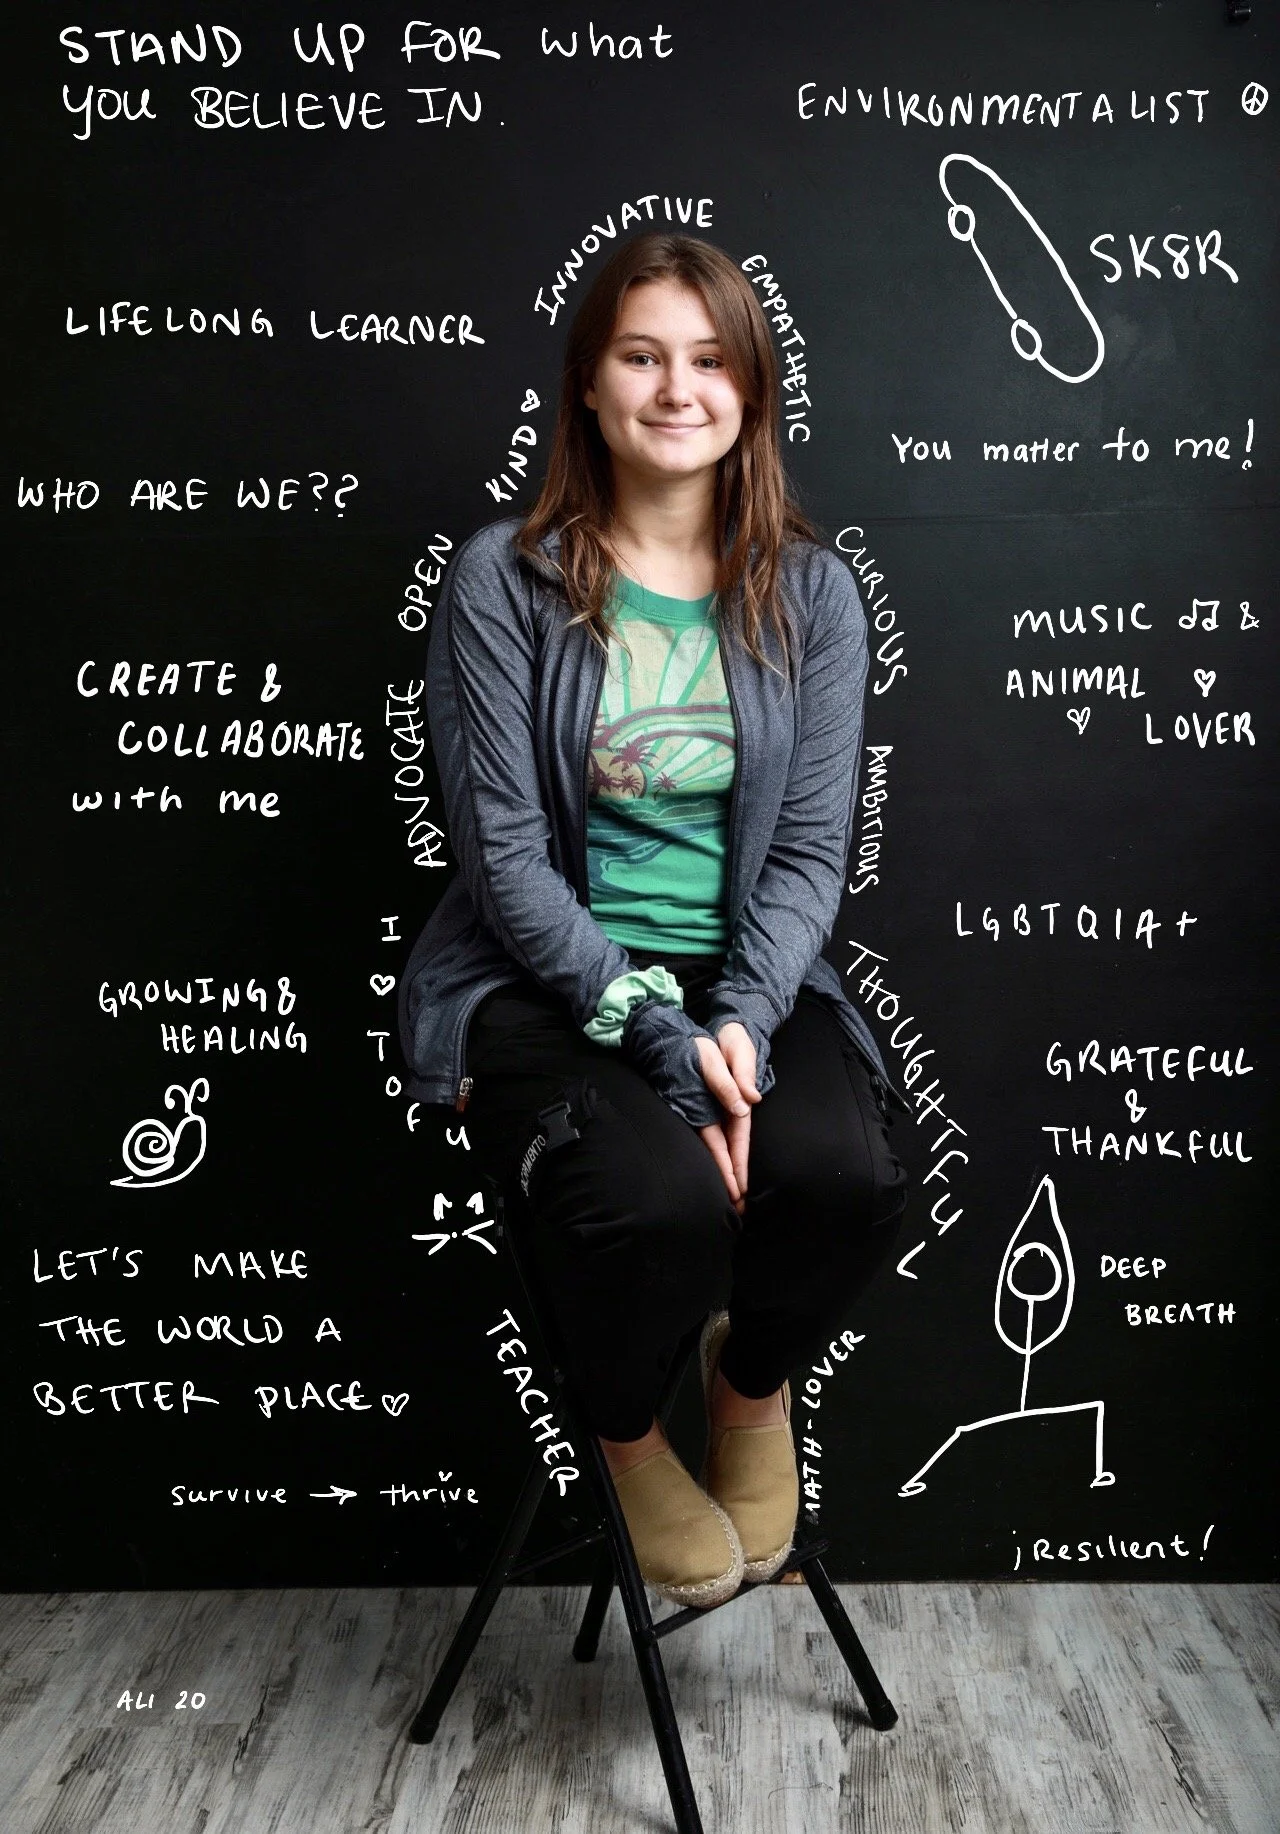 STAND UP FOR what
YOU BELIEVE IN.
ENVIRONMENTALIST
SK8R
INNOVATIVE
EMPATHETIC
LIFELONG LEARNER
KIND
You matter to me!
WHO ARE WE??
OPEN
CURIOUS
MUSIC &
ANIMAL
LOVER
CREATE &
COLLABORATE
with me
ADVOCATE
AMBITIOUS
LGBTQIA+
I
TOFU
THOUGHTFUL
GROWING &
HEALING
GRATEFUL
&
THANKFUL
SACRAMENTO
LET'S MAKE
THE WORLD A
BETTER PLACE
DEEP
BREATH
TEACHER
MATH-LOVER
survive → thrive
¡Resilient!
ALI 20